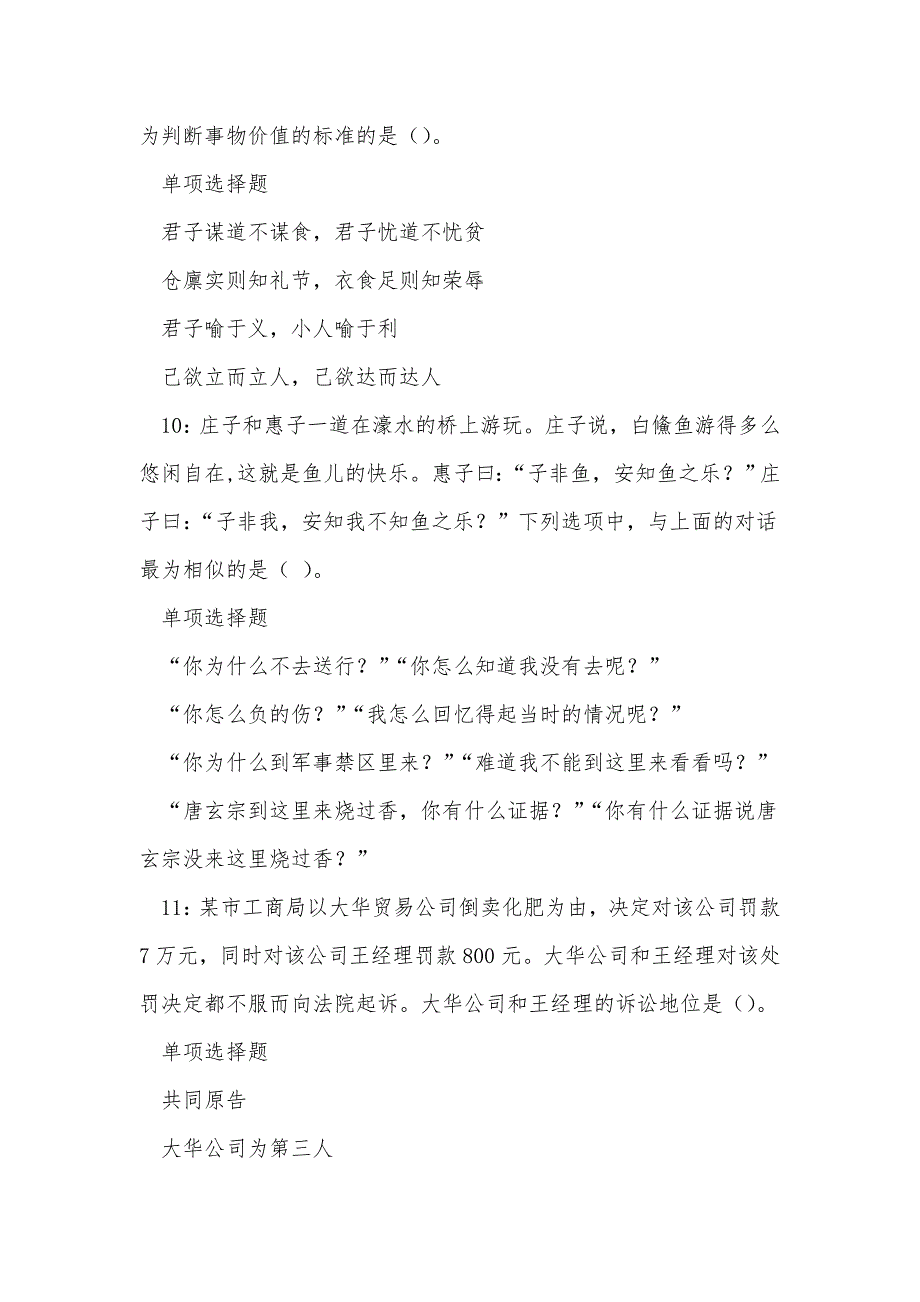 为判断事物价值的标准的是（）。
单项选择题
君子谋道不谋食，君子忧道不忧贫
仓廪实则知礼节，衣食足则知荣辱
君子喻于义，小人喻于利
己欲立而立人，己欲达而达人
10：庄子和惠子一道在濠水的桥上游玩。庄子说，白鯈鱼游得多么
悠闲自在,这就是鱼儿的快乐。惠子曰：“子非鱼，安知鱼之乐？”庄
子曰：“子非我，安知我不知鱼之乐？”下列选项中，与上面的对话
最为相似的是（ ）。
单项选择题
“你为什么不去送行？”“你怎么知道我没有去呢？”
“你怎么负的伤？”“我怎么回忆得起当时的情况呢？”
“你为什么到军事禁区里来？”“难道我不能到这里来看看吗？”
“唐玄宗到这里来烧过香，你有什么证据？”“你有什么证据说唐
玄宗没来这里烧过香？”
11：某市工商局以大华贸易公司倒卖化肥为由，决定对该公司罚款
7 万元，同时对该公司王经理罚款 800 元。大华公司和王经理对该处
罚决定都不服而向法院起诉。大华公司和王经理的诉讼地位是（）。
单项选择题
共同原告
大华公司为第三人